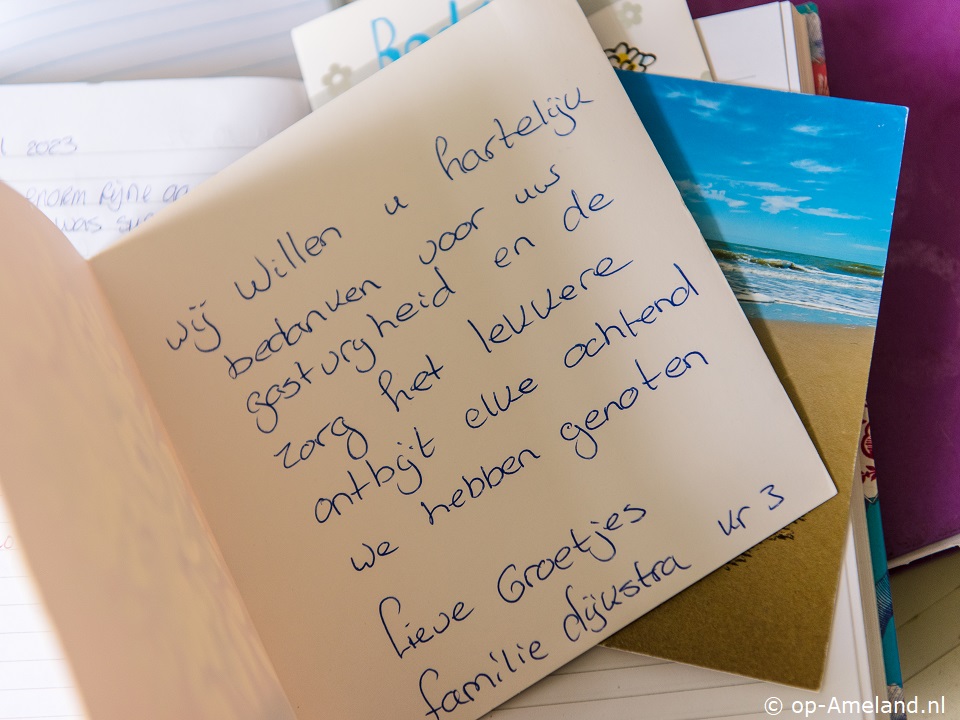 2023
was
wij willen u hartelijk
bedanken voor uw
gasturgheid en de
zorg het lekkere
ontbijt elke ochtend
we hebben genoten
Lieve Groetjes
familie dijkstra kr 3
© op-Ameland.nl